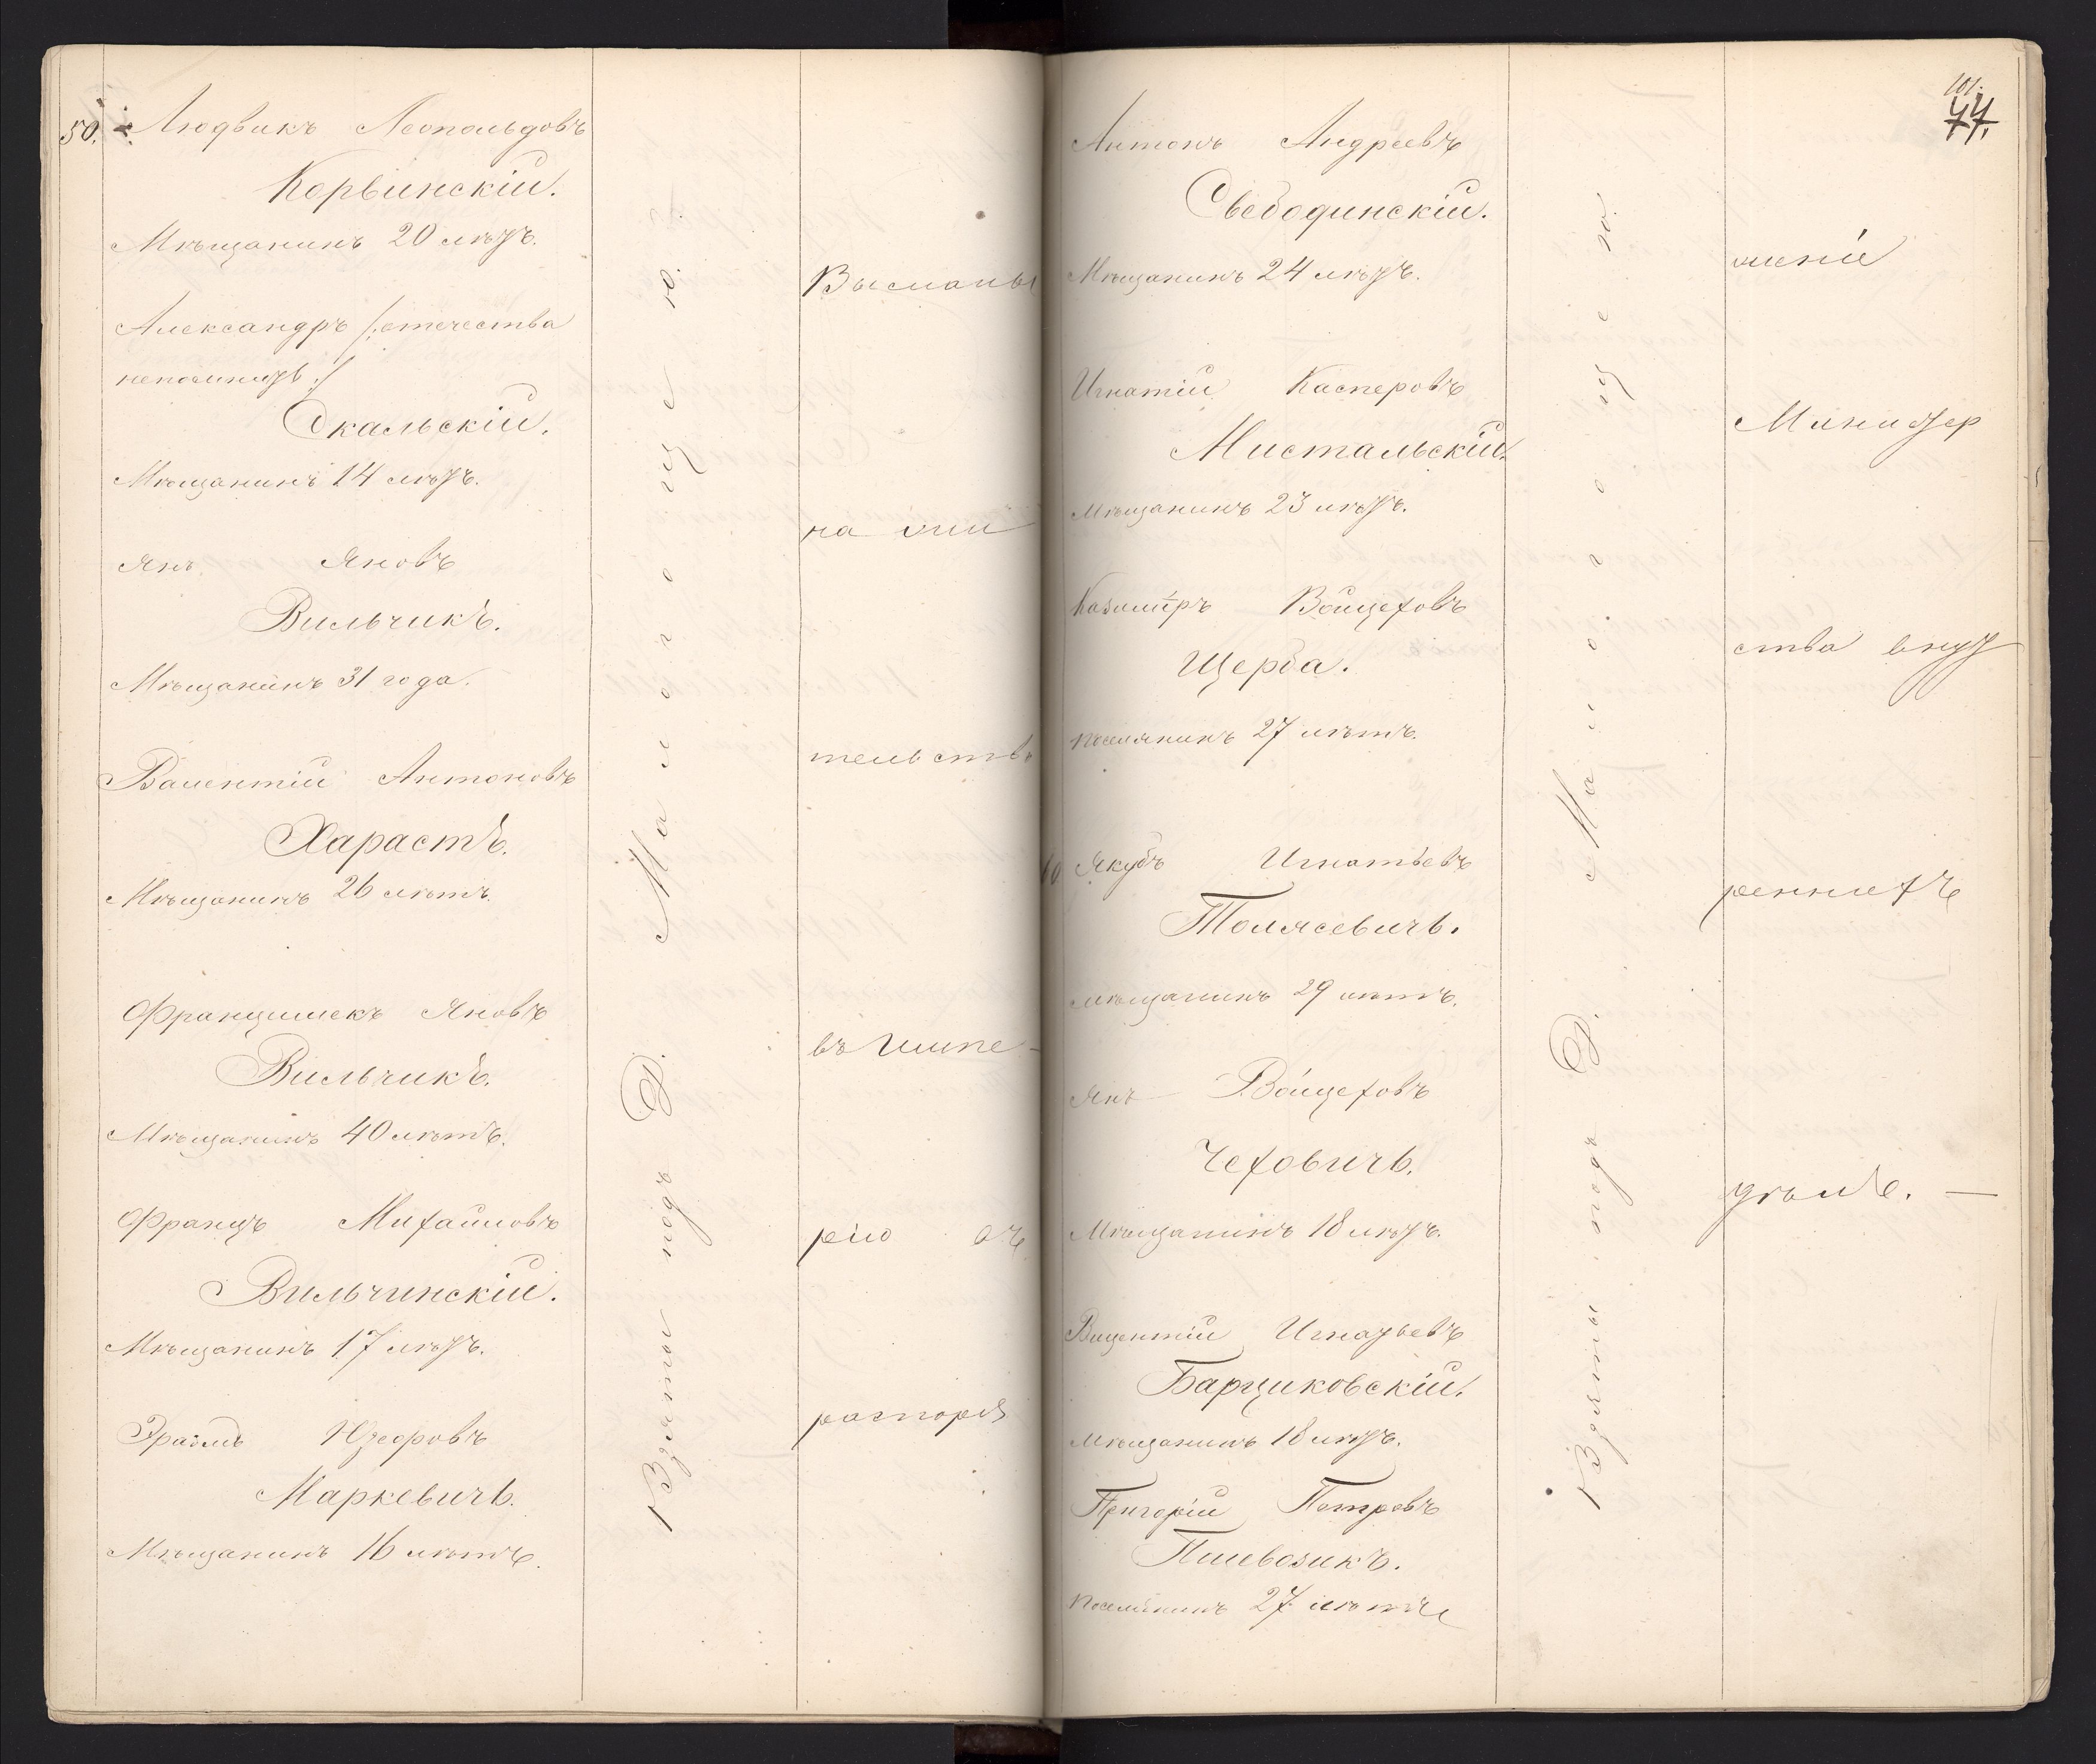 50. Людвикъ Леопольдовъ
Корвинскій.
Мѣщанинъ 20 лѣтъ.
Александръ /: отечества
непомнитъ :/
Скальскій.
Мѣщанинъ 14 лѣтъ.
Янъ Яновъ
Вильчикъ.
Мѣщанинъ 31 года.
Валентій Антоновъ
Харастъ.
Мѣщанинъ 26 лѣтъ.
Францишекъ Яновъ
Вильчикъ.
Мѣщанинъ 40 лѣтъ.
Францъ Михайловъ
Вильчинскій.
Мѣщанинъ 17 лѣтъ.
Юзефовъ
Маркевичъ.
Мѣщанинъ 16 лѣтъ.
Взяты подъ д. Малогощею.
Высланы
на жи
тельство
въ Импе-
рію
распоря
101.
77.
Антонъ Андреевъ
Свебодзинскій.
Мѣщанинъ 24 лѣтъ.
Игнатій Касперовъ
Мистальскій.
Мѣщанинъ 23 лѣтъ.
Казиміръ Войцеховъ
Щерба.
Поселянинъ 27 лѣтъ.
60 Якубъ Игнатьевъ
Толясевичъ.
Мѣщанинъ 29 лѣтъ.
Янъ Войцеховъ
Чеховичъ.
Мѣщанинъ 18 лѣтъ.
Вицентій Игнатьевъ
Барциковскій.
Мѣщанинъ 18 лѣтъ.
Григорій Петровъ
Пилевозикъ.
Поселянинъ 27 лѣтъ
Взяты подъ д. Малогощею.
женіе
Министер
ства внут
реннихъ
дѣлъ. —